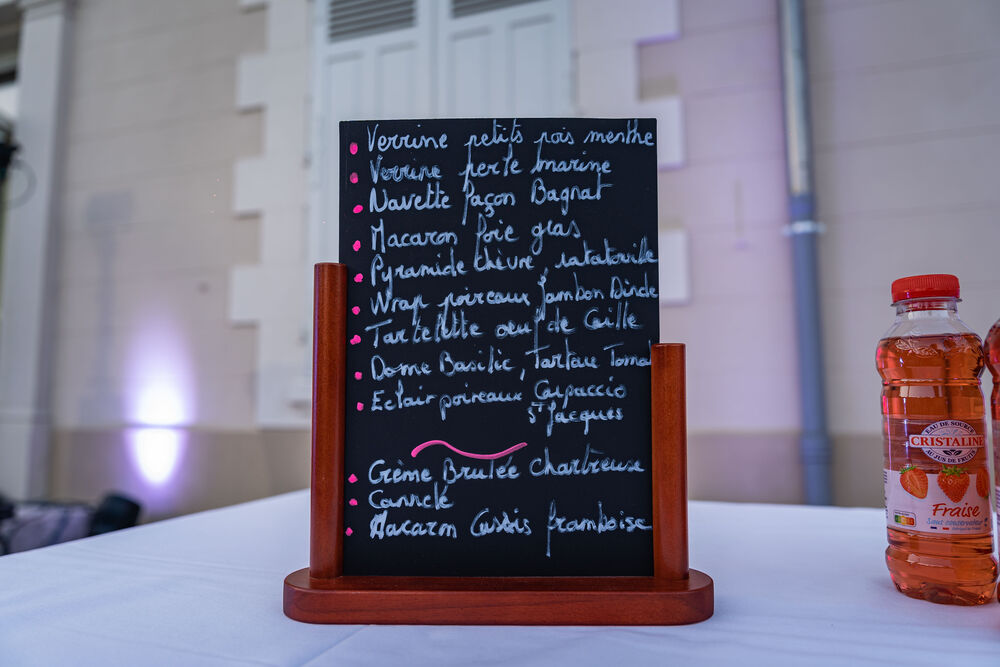 Verrine petits pois menthe
Verrine perle marine
Navette façon Bagnat
Macaron foie gras
Pyramide chèvre, ratatouille
Wrap poireaux jambon Dinde
Tartelette oeuf de Caille
Dome Basilic, Tartare Toma
Eclair poireaux Carpaccio
St Jacques
Crème Brulée Chartreuse
Cannelé
Macaron Cassis framboise
EAU DE SOURCE
CRISTALINE
AU JUS DE FRUITS
Fraise
Sans conservateur